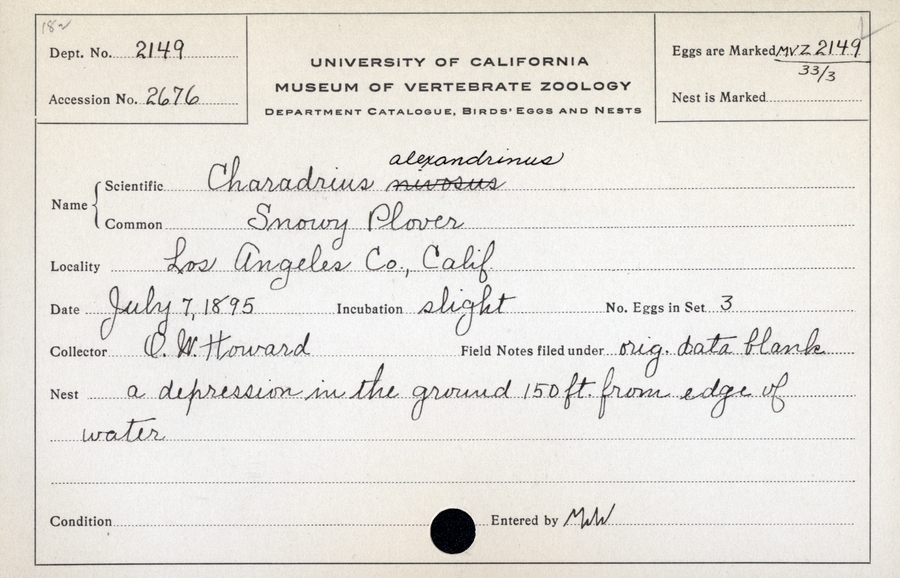 Dept. No. 2149
Accession No. 2676
UNIVERSITY OF CALIFORNIA
MUSEUM OF VERTEBRATE ZOOLOGY
DEPARTMENT CATALOGUE, BIRDS' EGGS AND NESTS
Eggs are Marked MVZ 2149
33/3
Nest is Marked
alexandrinus
Name { Scientific Charadrius nivosus
Common Snowy Plover
Locality Los Angeles Co., Calif.
Date July 7, 1895 Incubation slight No. Eggs in Set 3
Collector O. W. Howard Field Notes filed under orig. data blank
Nest a depression in the ground 150 ft. from edge of
water
Condition Entered by